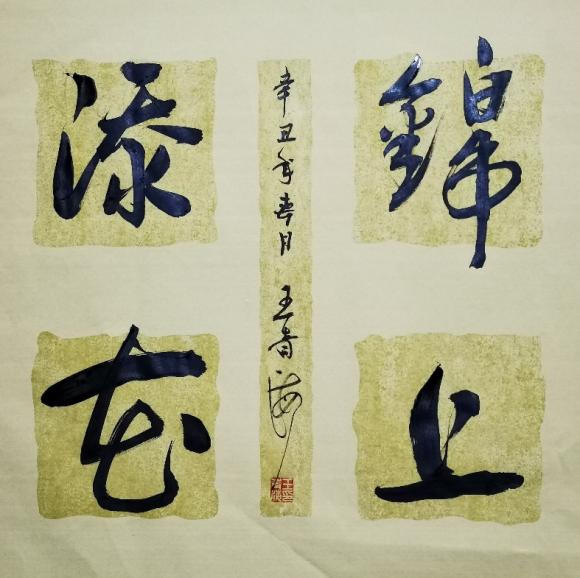 錦上
添花
辛丑年春月 王青海